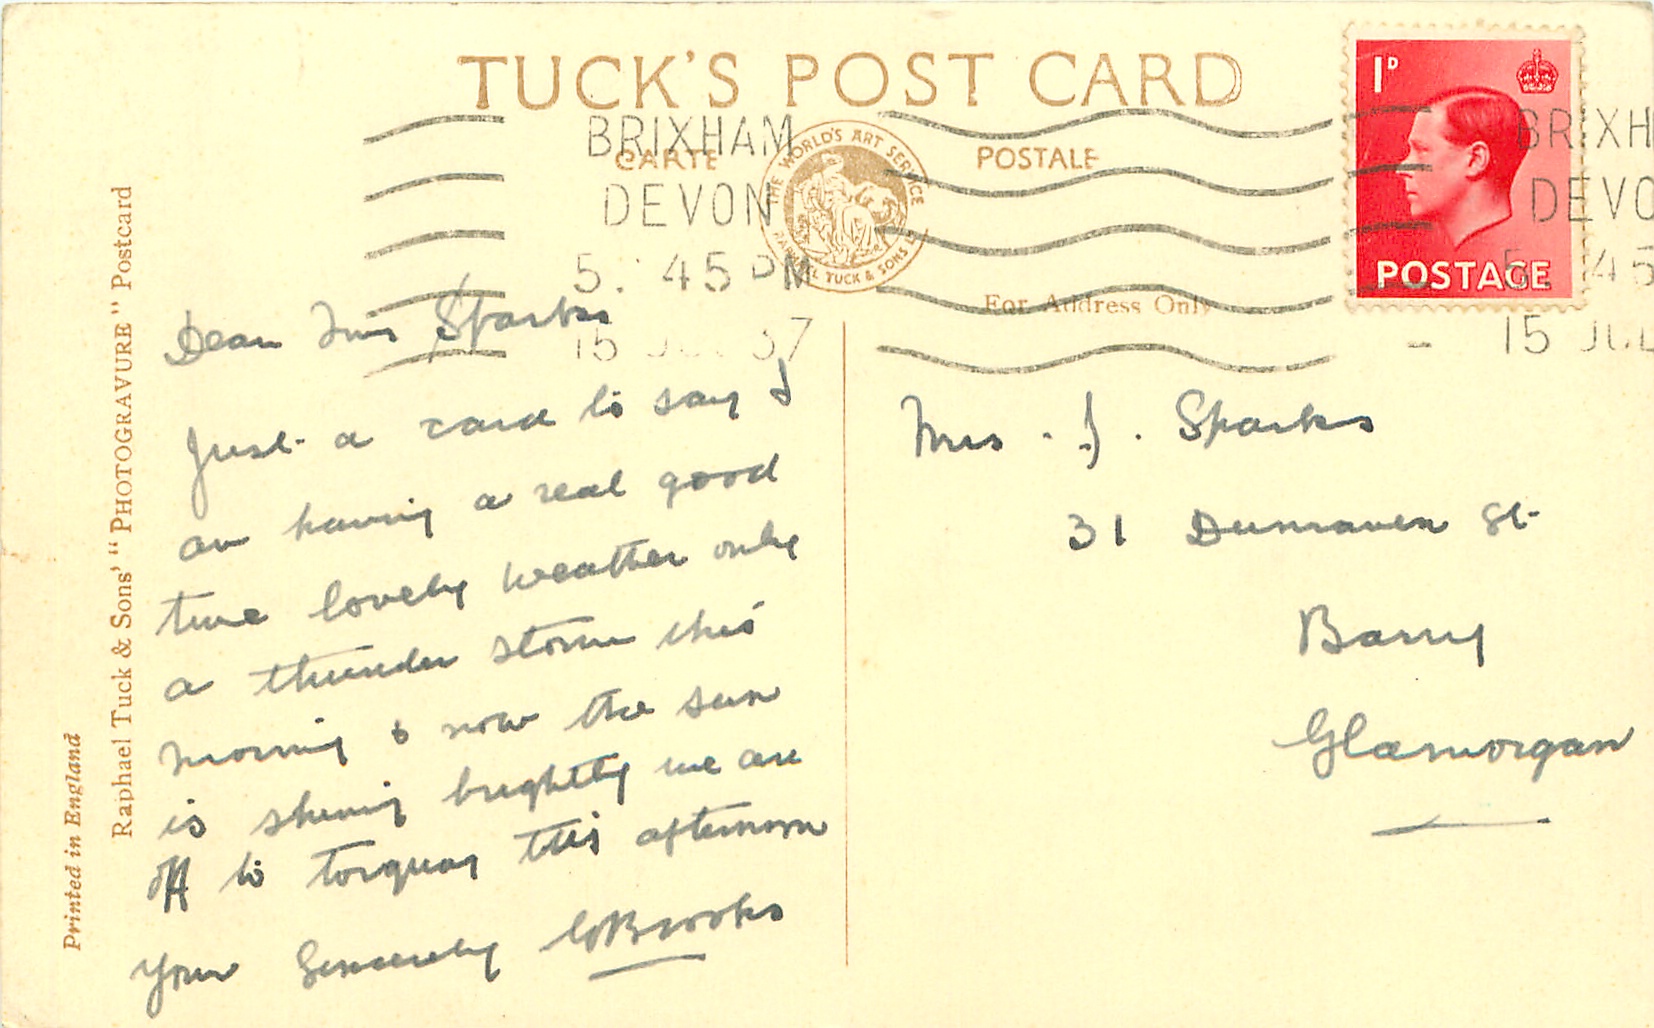 TUCK'S POST CARD
CARTE POSTALE
THE WORLD'S ART SERVICE
RAPHAEL TUCK & SONS LD
For Address Only
BRIXHAM
DEVON
5. 45 PM
15 JUL 37
1D
POSTAGE
BRIXH
DEVO
5. 45
15 JUL
Printed in England
Raphael Tuck & Sons' "PHOTOGRAVURE" Postcard
Dear Mrs Sparks
Just a card to say I
am having a real good
time lovely weather only
a thunder storm this
morning & now the sun
is shining brightly we are
off to Torquay this afternoon
Your Sincerely Brooks
Mrs. J. Sparks
31 Dunraven St.
Barry
Glamorgan